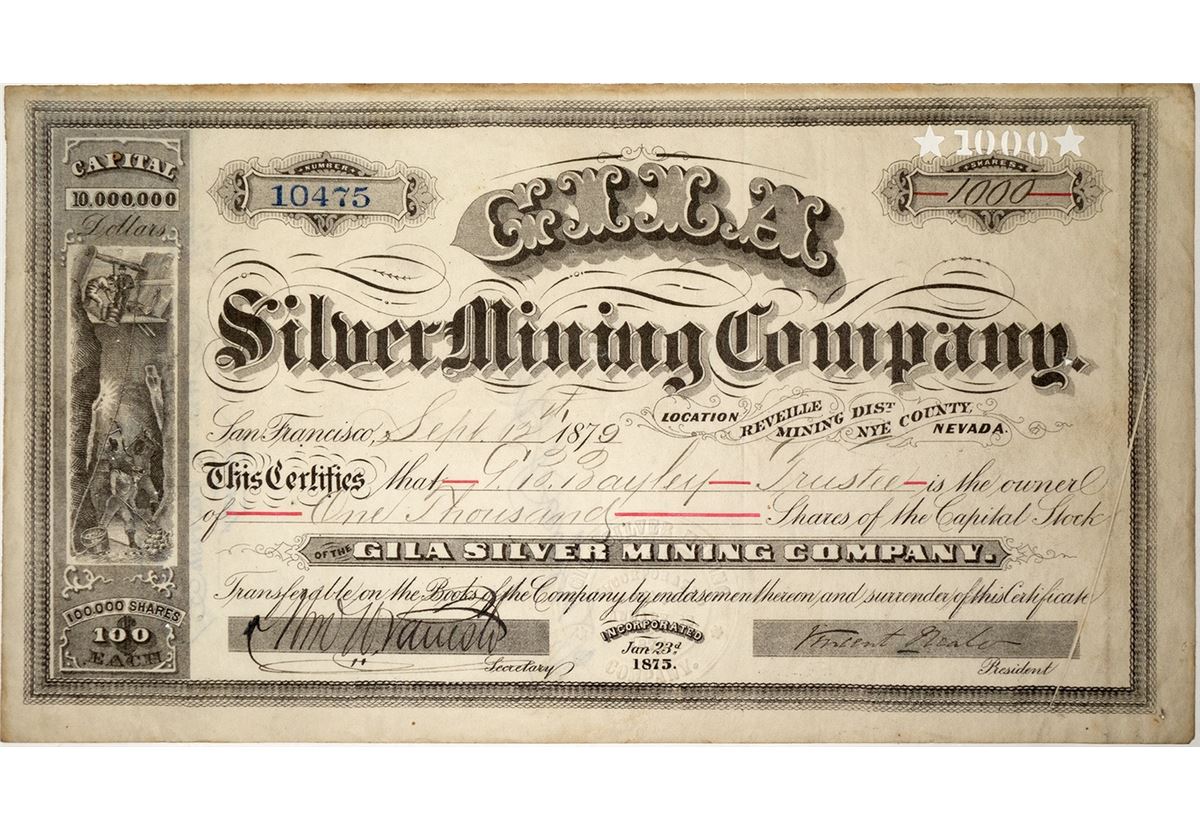 ★1000★
CAPITAL
10,000,000
Dollars
NUMBER
10475
GILA
SHARES
1000
Silver Mining Company.
San Francisco, Sept. 12th 1879
LOCATION REVEILLE MINING DIST NYE COUNTY, NEVADA.
This Certifies that G. B. Bayley Trustee is the owner
of One Thousand Shares of the Capital Stock
OF THE GILA SILVER MINING COMPANY.
Transferable on the Books of the Company by endorsement thereon and surrender of this Certificate
100,000 SHARES
100
EACH
Wm W.
Secretary
INCORPORATED
Jan 23d
1875.
Vincent
President